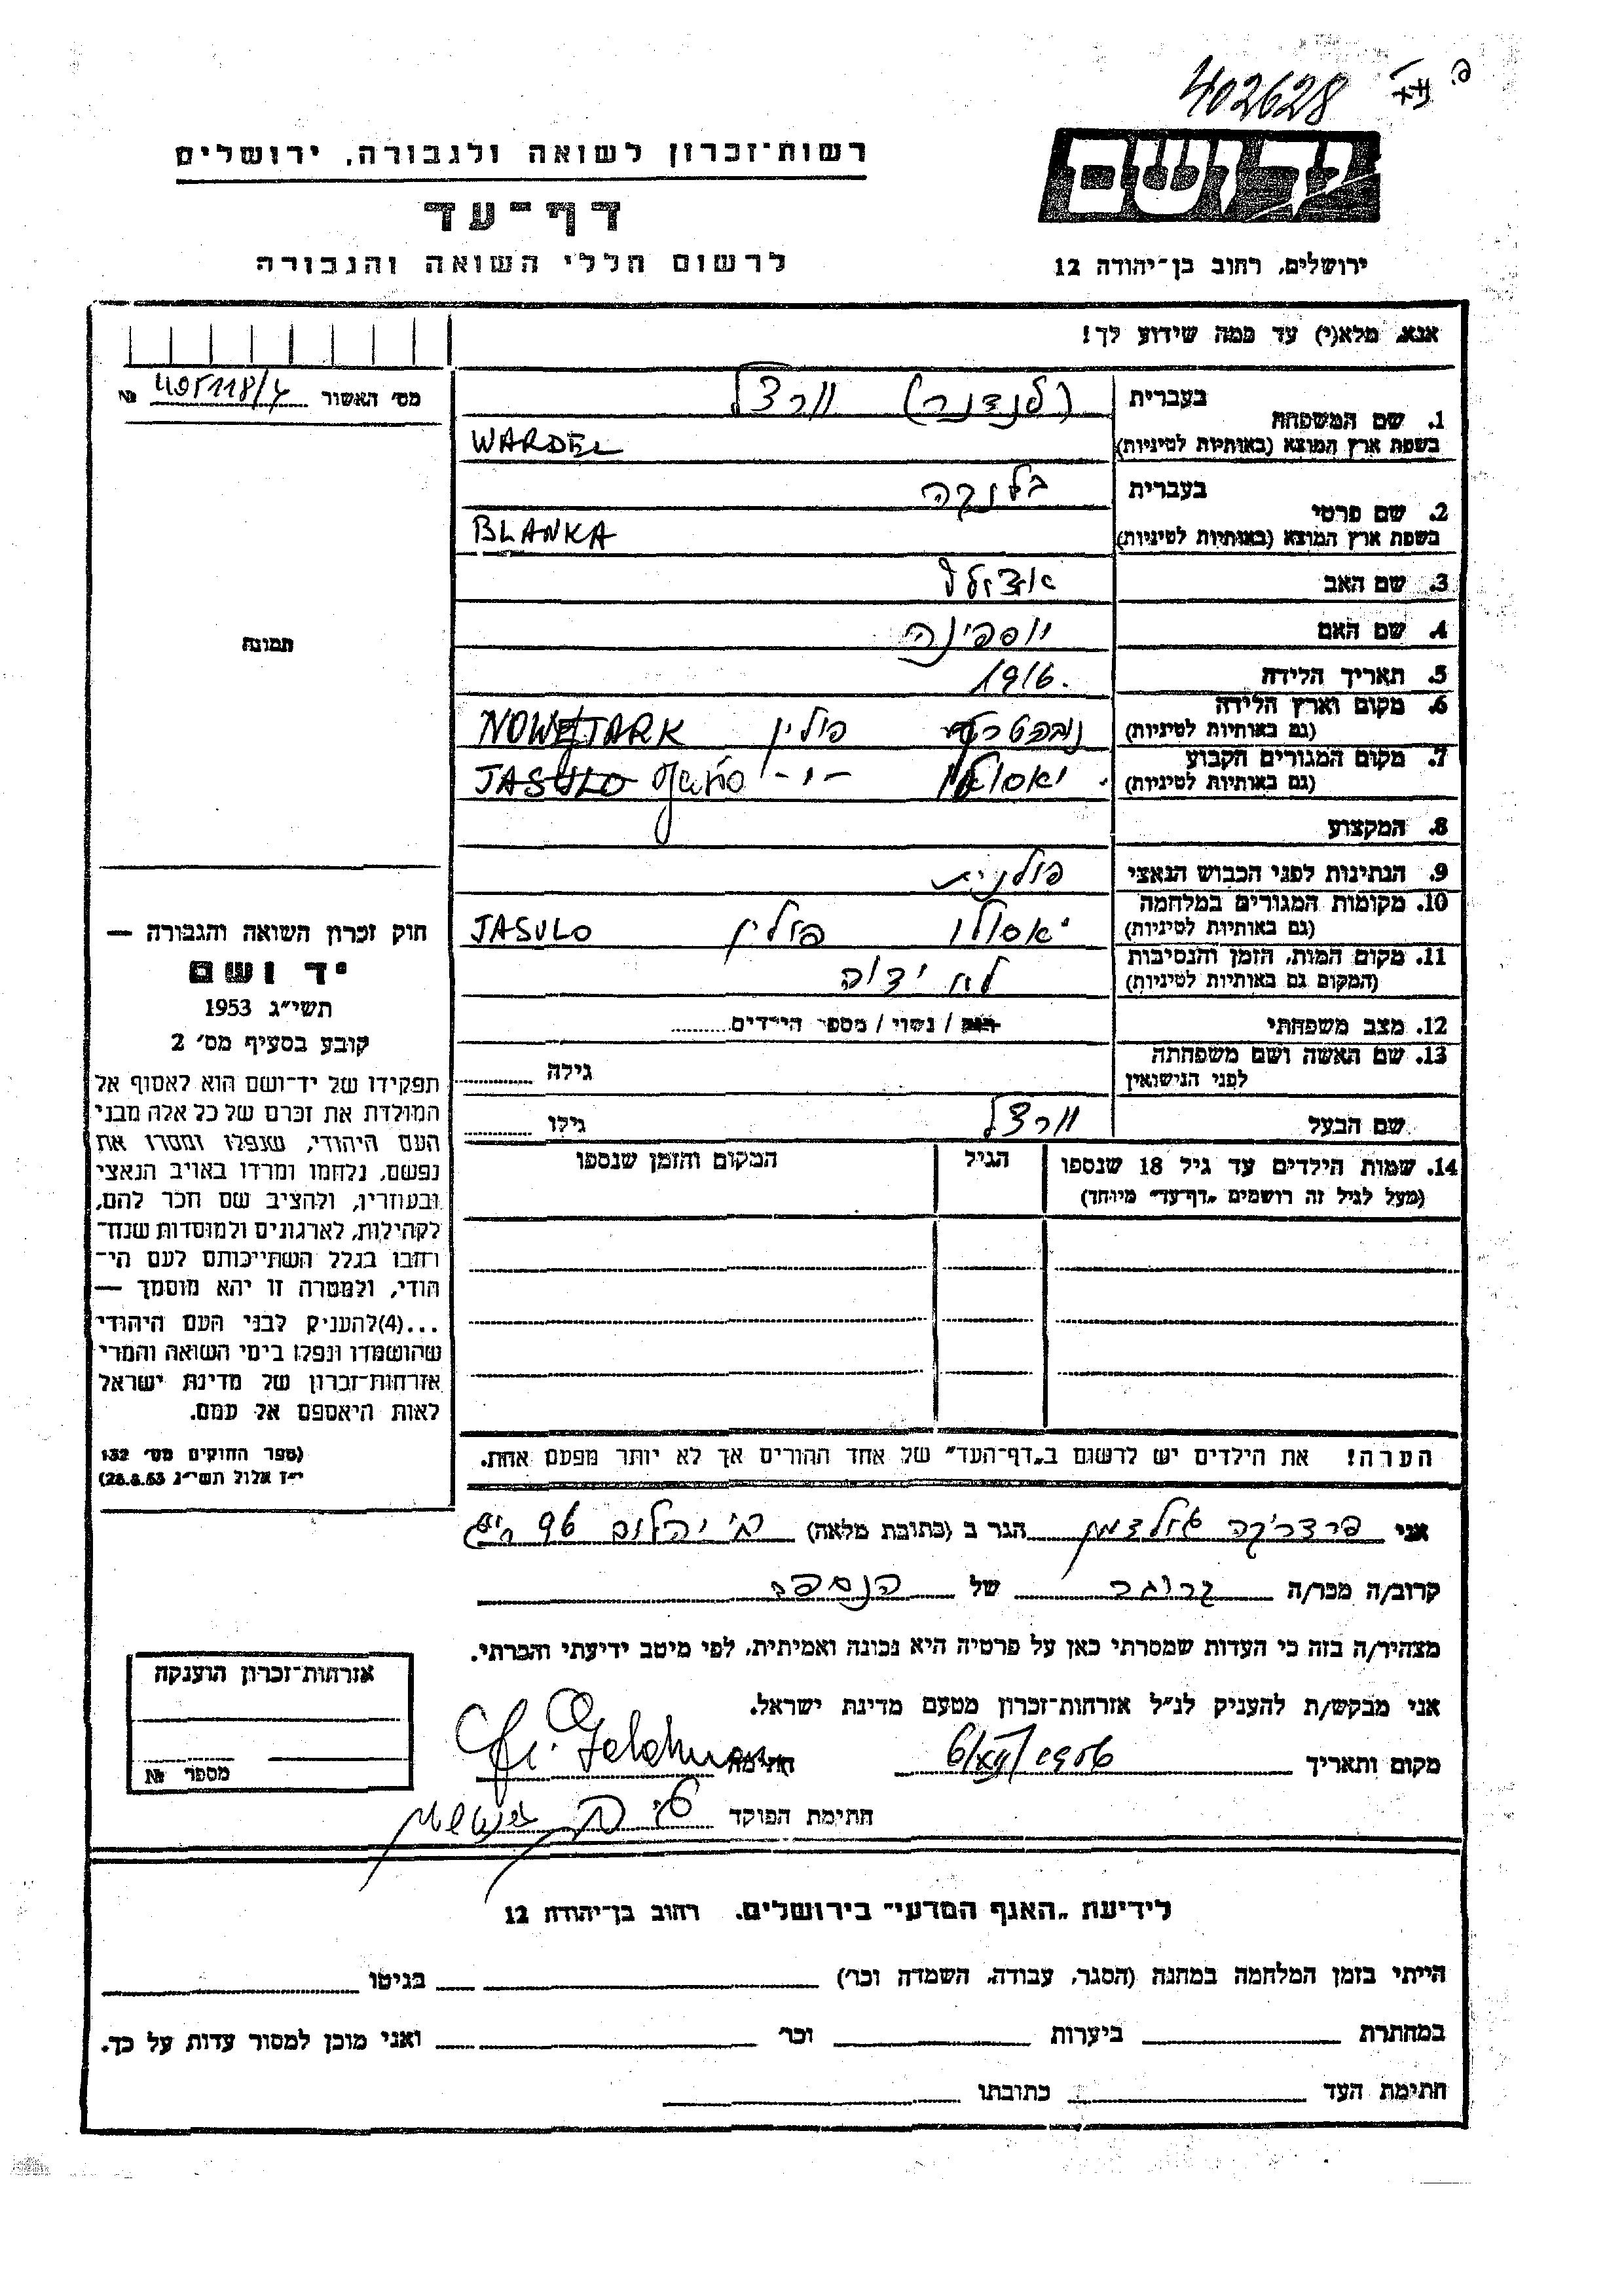 402628
רשות־זכרון לשואה ולגבורה, ירושלים
יד ושם
דף־עד
לרשום חללי השואה והגבורה
ירושלים, רחוב בן־יהודה 12
אנא, מלא(י) עד כמה שידוע לך!
מס׳ האשור № 405118/4
1. שם המשפחה בעברית (לנדנר) ורדל
בשפת ארץ המוצא (באותיות לטיניות) WARDEL
2. שם פרטי בעברית בלנקה
בשפת ארץ המוצא (באותיות לטיניות) BLANKA
3. שם האב אדולף
4. שם האם יוספינה
5. תאריך הלידה 1916.
6. מקום וארץ הלידה
(גם באותיות לטיניות) פולין NOWETARK
7. מקום המגורים הקבוע
(גם באותיות לטיניות) - " - JASULO Jasło
8. המקצוע
9. הנתינות לפני הכבוש הנאצי פולנית
10. מקומות המגורים במלחמה
(גם באותיות לטיניות) יאסולו פולין JASULO
11. מקום המות, הזמן והנסיבות
(המקום גם באותיות לטיניות) לא ידוע
12. מצב משפחתי רוק / נשוי / מספר הילדים
13. שם האשה ושם משפחתה
לפני הנישואין גילה
שם הבעל ורדל גילו
14. שמות הילדים עד גיל 18 שנספו הגיל המקום והזמן שנספו
(מעל לגיל זה רושמים „דף־עד״ מיוחד)
הערה! את הילדים יש לרשום ב„דף־העד״ של אחד ההורים אך לא יותר מפעם אחת.
תמונה
חוק זכרון השואה והגבורה —
יד ושם
תשי״ג 1953
קובע בסעיף מס׳ 2
תפקידו של יד־ושם הוא לאסוף אל
המולדת את זכרם של כל אלה מבני
העם היהודי, שנפלו ומסרו את
נפשם, נלחמו ומרדו באויב הנאצי
ובעוזריו, ולהציב שם וזכר להם,
לקהילות, לארגונים ולמוסדות שנח־
רחבו בגלל השתייכותם לעם הי־
הודי, ולמטרה זו יהא מוסמך —
...(4)להעניק לבני העם היהודי
שהושמדו ונפלו בימי השואה והמרי
אזרחות־זכרון של מדינת ישראל
לאות היאספם אל עמם.
(ספר החוקים מס׳ 132
י״ז אלול תשי״ג 28.8.53)
אני פרדריקה גולדמן הגר ב (כתובת מלאה) 96
קרוב/ה מכר/ה של הנספה
מצהיר/ה בזה כי העדות שמסרתי כאן על פרטיה היא נכונה ואמיתית, לפי מיטב ידיעתי והכרתי.
אני מבקש/ת להעניק לנ״ל אזרחות־זכרון מטעם מדינת ישראל.
מקום ותאריך 6/XII/1956 חתימה
חתימת הפוקד
אזרחות־זכרון הוענקה
מספר №
לידיעת „האגף המדעי״ בירושלים, רחוב בן־יהודה 12
הייתי בזמן המלחמה במחנה (הסגר, עבודה, השמדה וכר׳) בגיטו
במחתרת ביערות וכר׳ ואני מוכן למסור עדות על כך.
חתימת העד כתובתו